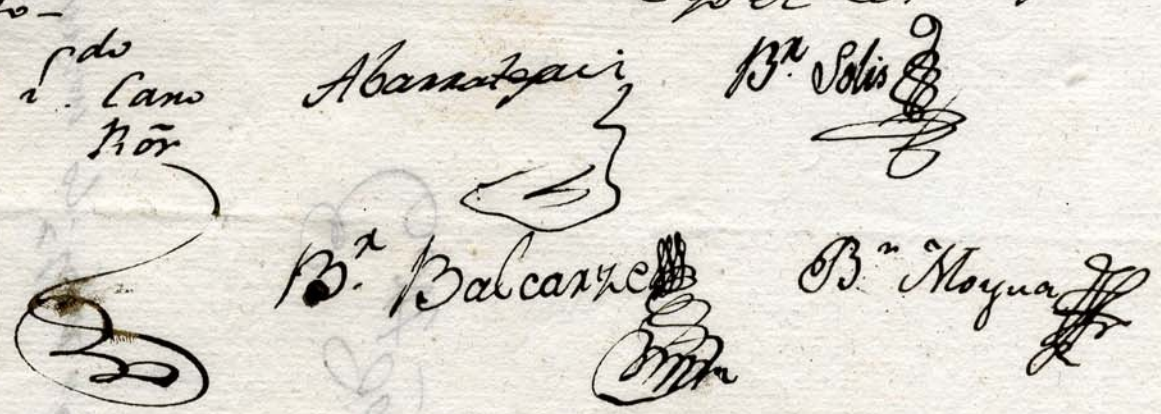 do
Cano
Rōr
Abarrategui
Br. Solis
Br. Balcarzel
Bn Moyua